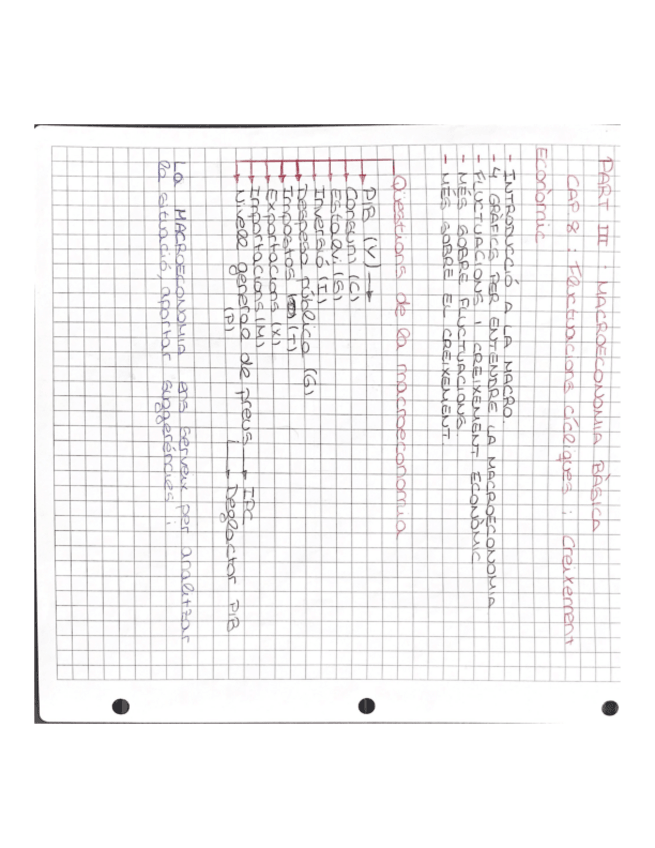 PART III : MACROECONOMIA BÀSICA
CAP 8 : Fluctuacions cícliques i Creixement
Econòmic
- INTRODUCCIÓ A LA MACRO
- 4 GRÀFICS PER ENTENDRE LA MACROECONOMIA
- FLUCTUACIONS I CREIXEMENT ECONÒMIC
- MÉS SOBRE FLUCTUACIONS
- MÉS SOBRE EL CREIXEMENT
Qüestions de la macroeconomia
PIB (Y) →
Consum (C)
Estalvi (S)
Inversió (I)
Despesa pública (G)
Impostos (T)
Exportacions (X)
Importacions (M)
Nivell general de preus → IPC
(P) → Deflactor PIB
La MACROECONOMIA ens serveix per analitzar
la situació, aportar suggerències i